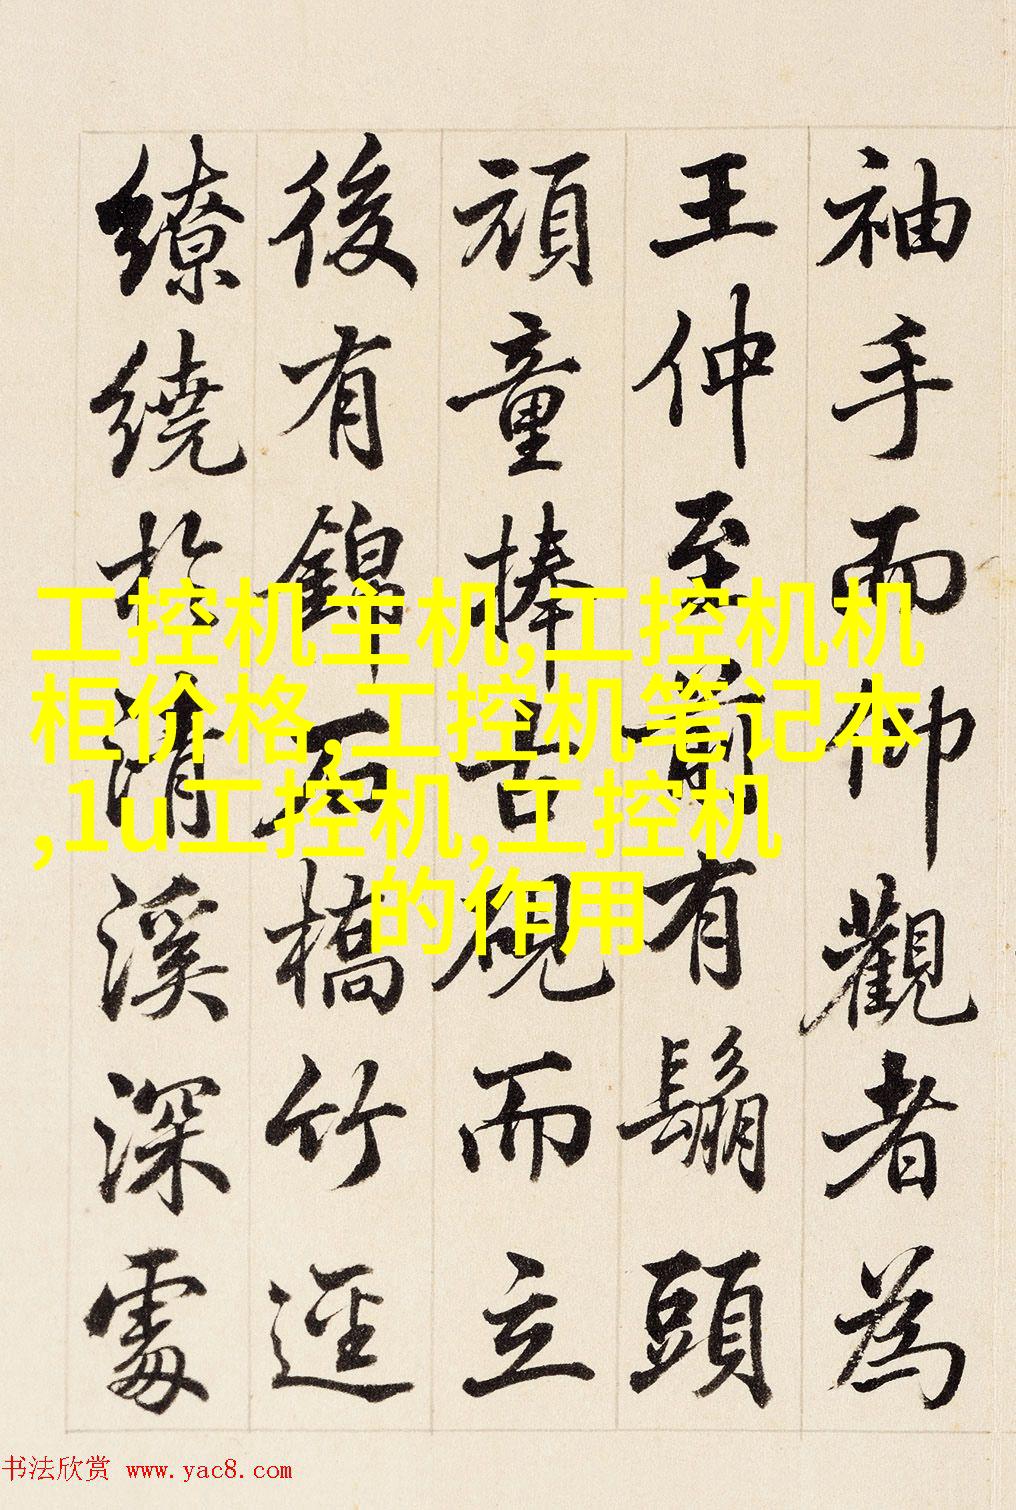 袖手而仰觀者為
王仲至前有鬅頭
頑童捧古硯而立
後有錦石橋竹逕
繚繞於清溪深處
工控机主机,工控机机
柜价格,工控机笔记本
,1u工控机,工控机
的作用
书法欣赏 www.yac8.com